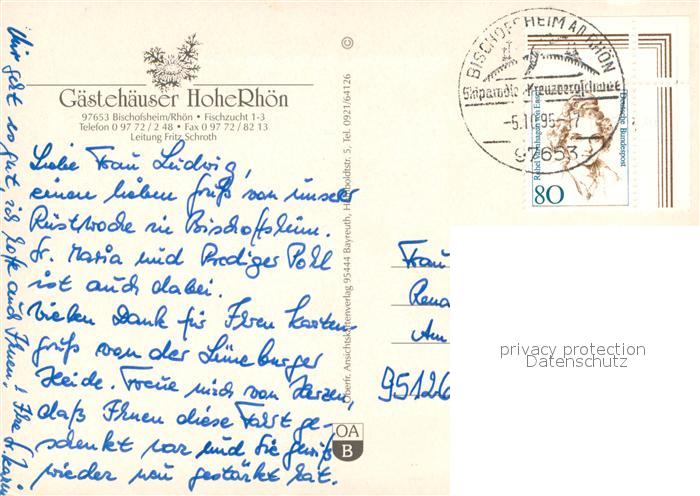 Gästehäuser HoheRhön
97653 Bischofsheim/Rhön • Fischzucht 1-3
Telefon 0 97 72 / 2 48 • Fax 0 97 72 / 82 13
Leitung Fritz Schroth
Liebe Frau Ludwig,
einen lieben Gruß von unserer
Rüstwoche in Bischofsheim.
Sr. Maria und Prediger Pohl
ist auch dabei.
Vielen Dank für Ihren Karten-
gruß von der Lüneburger
Heide. Freue mich von Herzen,
daß Ihnen diese Fahrt ge-
schenkt war und Sie gewiß
wieder neu gestärkt hat.
Mir geht es gut, ich hoffe auch Ihnen! Ihre Sr. Karin
©
Oberfr. Ansichtskartenverlag 95444 Bayreuth, Humboldtstr. 5, Tel. 0921/64126
OA
B
BISCHOFSHEIM AN RHÖN
Skiparadies Kreuzbergschanze
-5.10.95-17
97653
Rahel Varnhagen von Ense
Deutsche Bundespost
80
Frau
Rena
Am
95126
privacy protection
Datenschutz